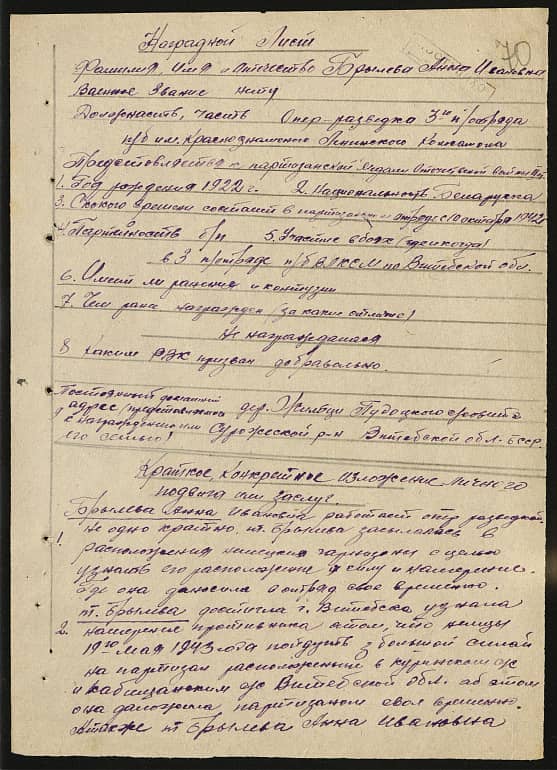 70
Наградной Лист
Фамилия, Имя и отечество Брылева Анна Ивановна
Военное Звание нету
Должность, часть Опер-разведка 3го п/отряда
п/б им. Краснознаменого Ленинского Комсомола
к партизанской медали Отечественной войны
1. Год рождения 1922 г. 2. Национальность Беларуска
3. Сколко времени состоит в партизанском отряде с 10 октября 1942
4. Партийность б/п 5. Участие в боях (где и когда)
в 3 п/отряде п/б ВЛКСМ по Витебской обл.
6. Имеит ли ранения и контузии
7. Чем рание награжден (за какие отличие)
Не награждалася
8 Каким РВК призван добравольно.
Постоянный домашний
9 адрес представленна дер. Пудоцкого с/совета
к награждению или Суражской р-н Витебской обл. БССР.
его семьи!
Краткое, конкретное изложение личного
подвига или заслуг
Брылева Анна Ивановна работает опер разведкой
1. не однократно т. Брылива засылалась в
расположения немецких гарнизоны с целью
узнать его расположение и силу и намерение.
Где она данесила в отряд свое временно.
т. Брылева достигла г. Витебска узнала
2. намерение противника о том, что немцы
19го Мая 1943 года пойдуть з большой силай
на партизан расположений в Куринском с/с
и с/с Витебской обл. об этом
она даложила партизаном свое временно.
А также т Брылева Анна Ивановна